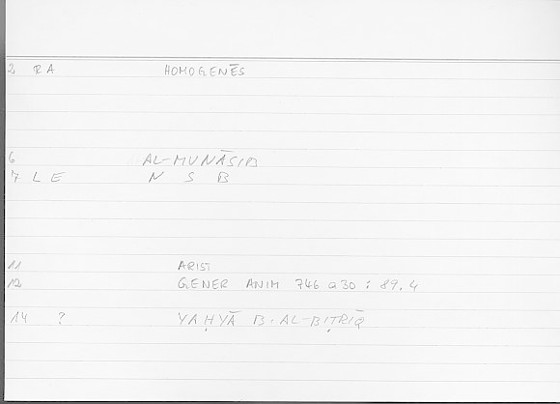 2 RA HOMOGENĒS
6 AL-MUNĀSIB
7 LE N S B
11 ARIST
12 GENER ANIM 746 a 30 : 89.4
14 ? YAḤYĀ B. AL-BIṬRĪQ